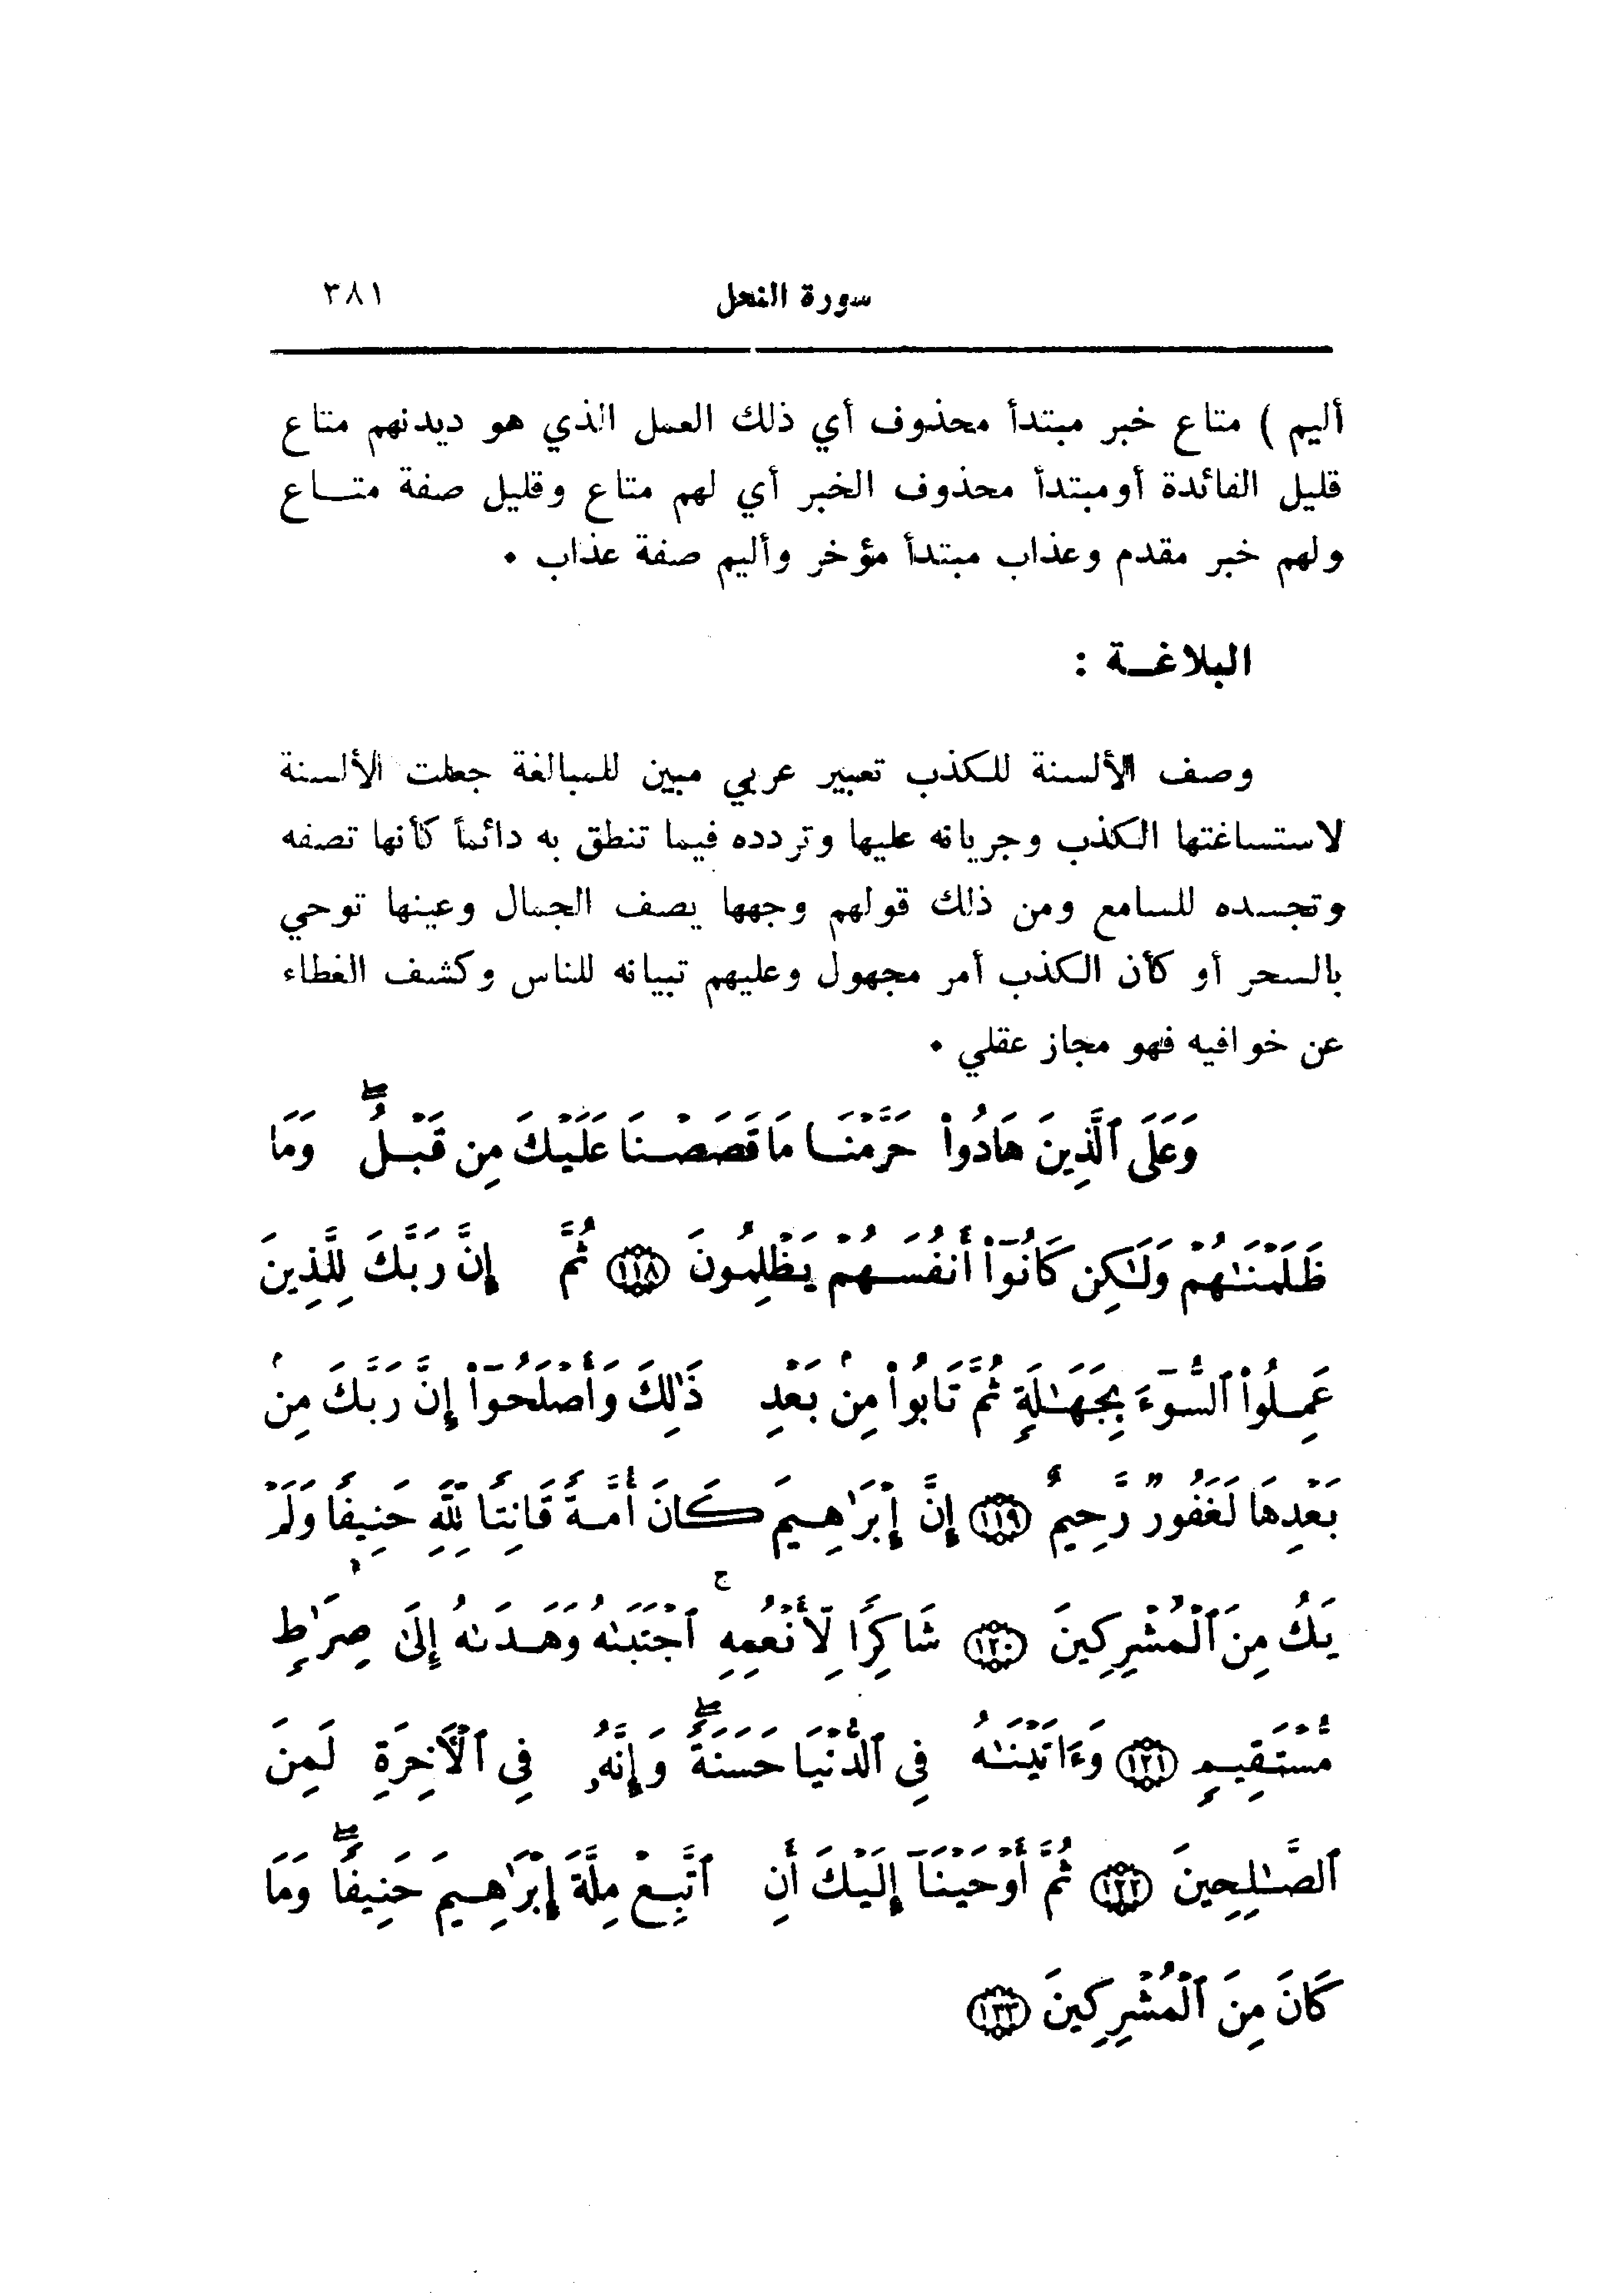 سورة النحل ٣٨١
أليم ) متاع خبر مبتدأ محذوف أي ذلك العمل الذي هو ديدنهم متاع
قليل الفائدة أو مبتدأ محذوف الخبر أي لهم متاع وقليل صفة متــاع
ولهم خبر مقدم وعذاب مبتدأ مؤخر وأليم صفة عذاب .
البلاغــة :
وصف الألسنة للكذب تعبير عربي مبين للمبالغة جعلت الألسنة
لاستساغتها الكذب وجريانه عليها وتردده فيما تنطق به دائماً كأنها تصفه
وتجسده للسامع ومن ذلك قولهم وجهها يصف الجمال وعينها توحي
بالسحر أو كأن الكذب أمر مجهول وعليهم تبيانه للناس وكشف الغطاء
عن خوافيه فهو مجاز عقلي .
وَعَلَى ٱلَّذِينَ هَادُوا۟ حَرَّمْنَا مَا قَصَصْنَا عَلَيْكَ مِن قَبْلُ ۖ وَمَا
ظَلَمْنَٰهُمْ وَلَٰكِن كَانُوٓا۟ أَنفُسَهُمْ يَظْلِمُونَ ١١٨ ثُمَّ إِنَّ رَبَّكَ لِلَّذِينَ
عَمِلُوا۟ ٱلسُّوٓءَ بِجَهَٰلَةٍ ثُمَّ تَابُوا۟ مِنۢ بَعْدِ ذَٰلِكَ وَأَصْلَحُوٓا۟ إِنَّ رَبَّكَ مِنۢ
بَعْدِهَا لَغَفُورٌ رَّحِيمٌ ١١٩ إِنَّ إِبْرَٰهِيمَ كَانَ أُمَّةً قَانِتًا لِّلَّهِ حَنِيفًا وَلَمْ
يَكُ مِنَ ٱلْمُشْرِكِينَ ١٢٠ شَاكِرًا لِّأَنْعُمِهِ ۚ ٱجْتَبَىٰهُ وَهَدَىٰهُ إِلَىٰ صِرَٰطٍ
مُّسْتَقِيمٍ ١٢١ وَءَاتَيْنَٰهُ فِى ٱلدُّنْيَا حَسَنَةً ۖ وَإِنَّهُۥ فِى ٱلْأَخِرَةِ لَمِنَ
ٱلصَّٰلِحِينَ ١٢٢ ثُمَّ أَوْحَيْنَآ إِلَيْكَ أَنِ ٱتَّبِعْ مِلَّةَ إِبْرَٰهِيمَ حَنِيفًا ۖ وَمَا
كَانَ مِنَ ٱلْمُشْرِكِينَ ١٢٣